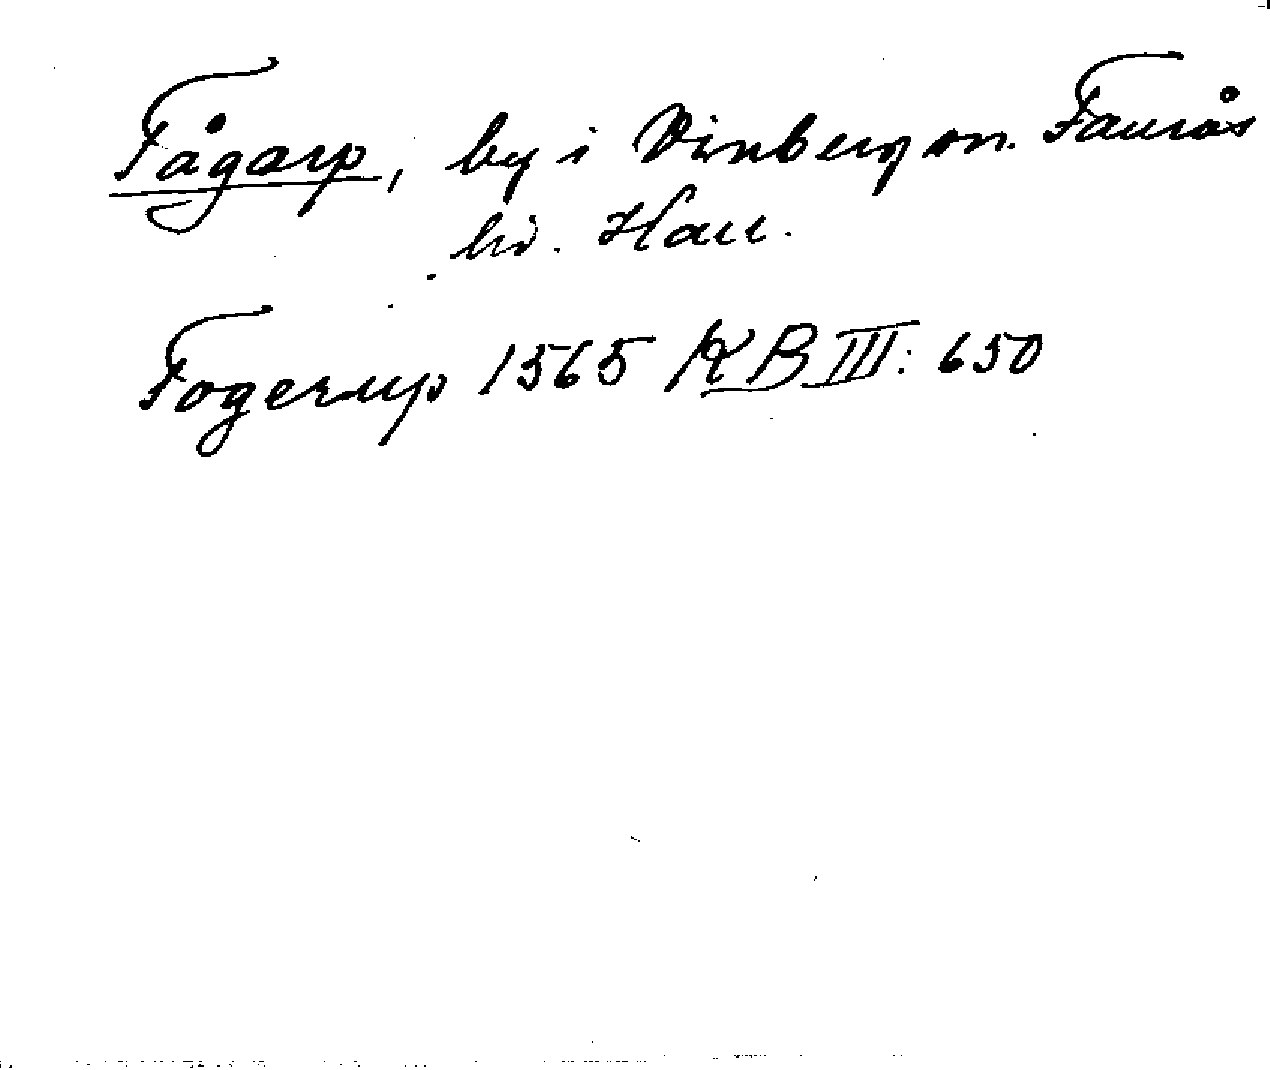 Fågarp, by i Vinberg sn. Faurås
hd. Hall.
Fogerup 1565 KB III: 650